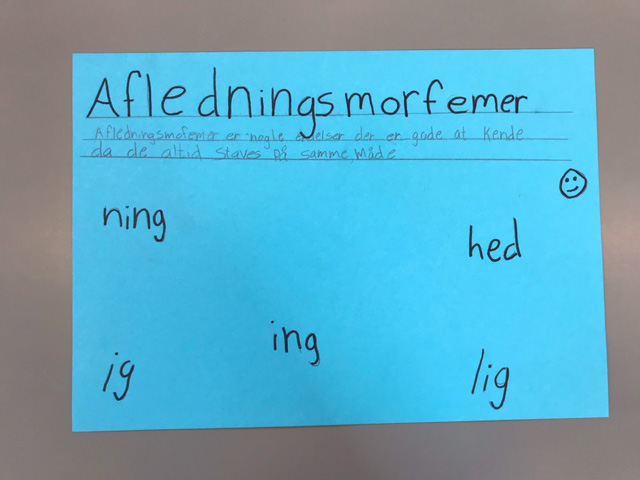 Afledningsmorfemer
Afledningsmofemer er nogle endelser der er gode at kende
da de altid staves på samme måde
ning
hed
ing
ig
lig